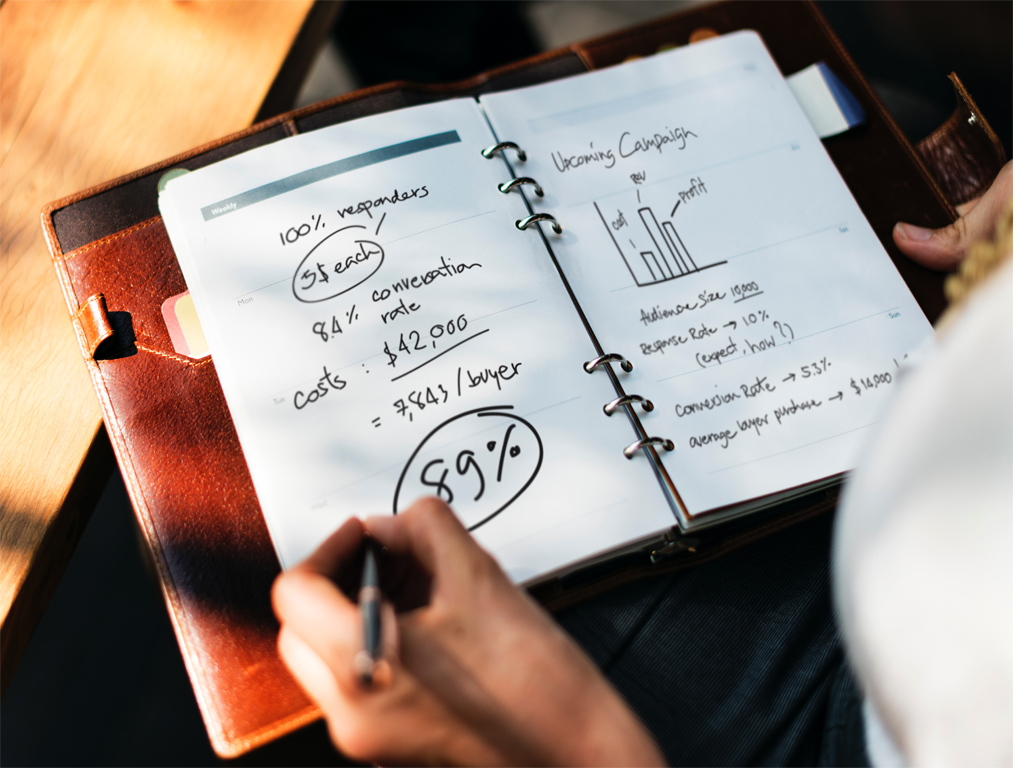 Weekly
100% responders
5$ each
8.4% conversation
rate
costs : $42,000
= 7,843/buyer
89%
Mon
Tue
Upcoming Campaign
Rev
cost
profit
Audience size 10,000
Response Rate → 10%
(expect, how?)
Conversion Rate → 5.3%
average buyer purchase → $14,000
Sun